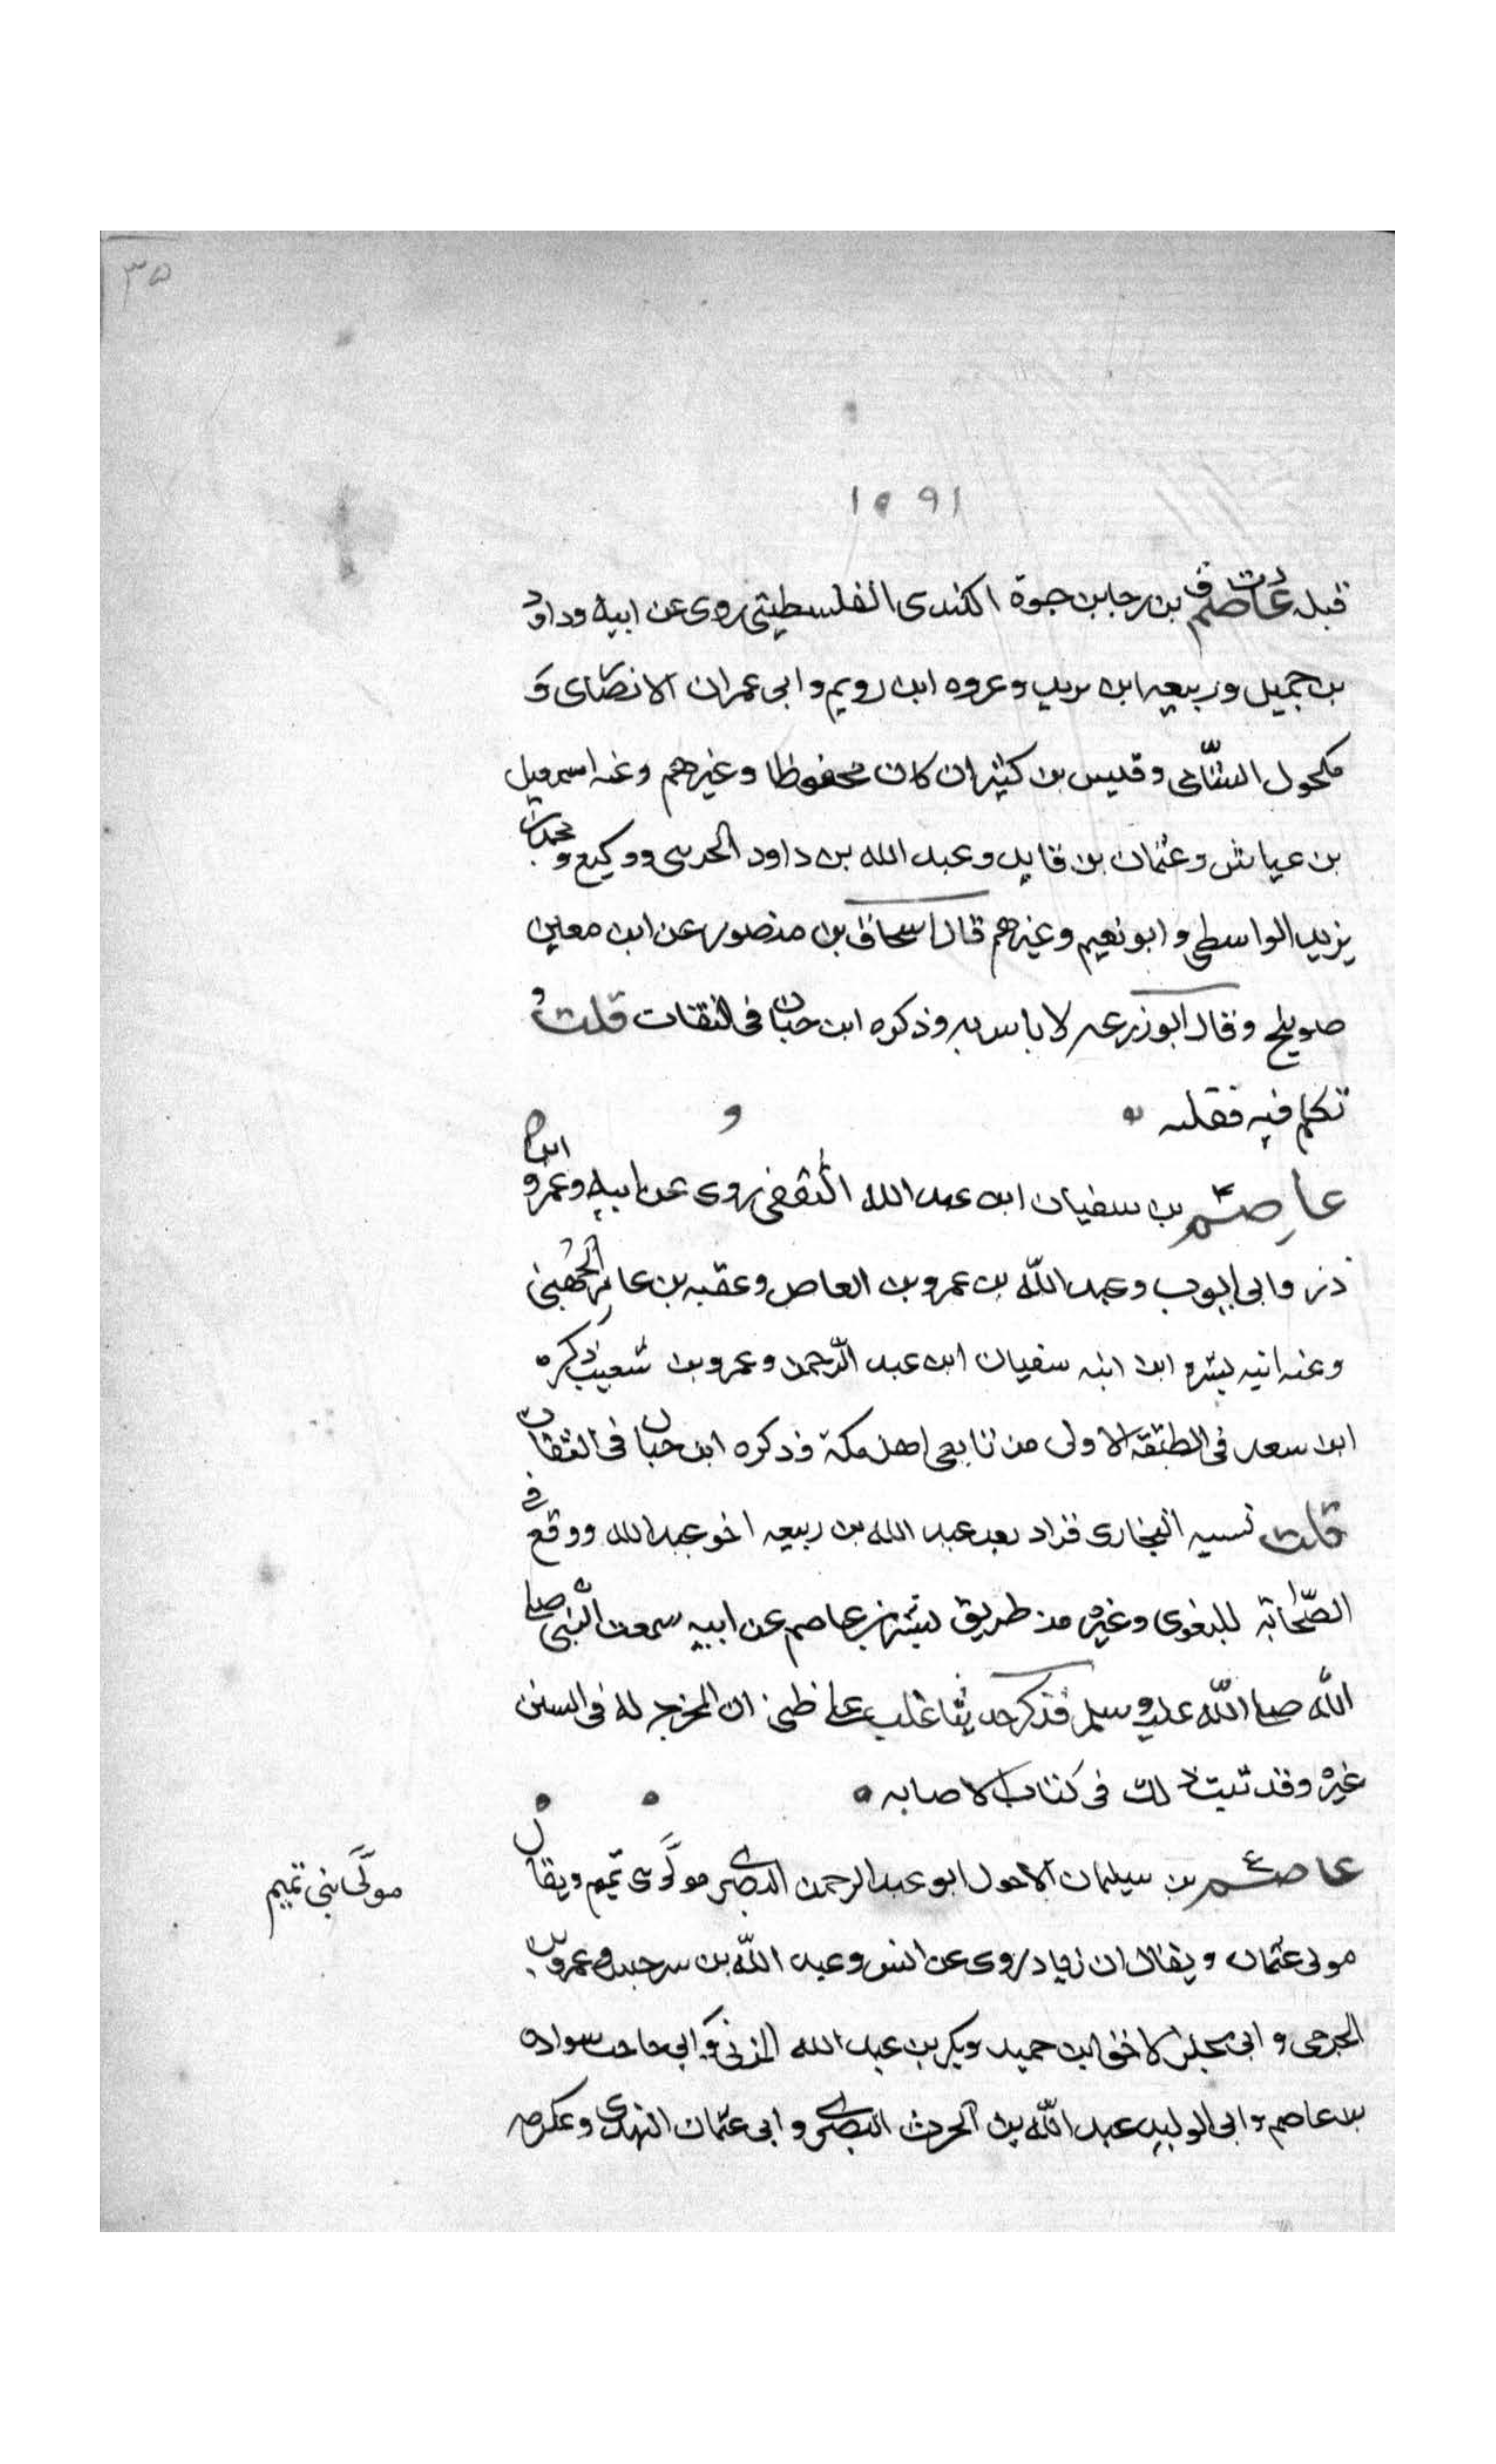 ٣٥
١٥٩١
قبله عاصم بن رجا بن حيوة الكندى الفلسطينى روى عن ابيه وداود
بن جميل وربيعه ابن يزيد وعروه ابن رويم وابى عمران الانصارى و
مكحول الشامى وقيس بن كثير ان كان محفوظا وغيرهم وعنه اسمعيل
بن عياش وعثمان بن فايد وعبد الله بن داود الحربى ووكيع ومحمد بن
يزيد الواسطى وابو نعيم وغيرهم قال اسحاق بن منصور عن ابن معين
صويلح وقال ابو زرعه لا باس به وذكره ابن حبان فى الثقات قلت و
تكلم فيه
عاصم بن سفيان ابن عبد الله الثقفى روى عن ابيه وعمر و
ذر وابى ايوب وعبد الله بن عمرو بن العاص وعقبه بن عامر الجهنى
وعنه ابنه بشر و ابن ابنه سفيان ابن عبد الرحمن وعمرو بن شعيب ذكره
ابن سعد فى الطبقة الاولى من تابعى اهل مكة وذكره ابن حبان فى الثقات
قلت نسبه البخارى فزاد بعد عبد الله بن ربيعه اخو عبد الله ووقع فى
الصحابة للبغوى وغيره من طريق بشر بن عاصم عن ابيه سمعت النبى صلى
الله صلى الله عليه وسلم فذكر حديثا غلب على ظنى ان المخرج له فى السنن
غيره وقد بينت ذلك فى كتاب الاصابه
عاصم بن سليمان الاحول ابو عبد الرحمن البصرى مولى بنى تميم ويقال
مولى بنى تميم
مولى عثمان ويقال ان زياد روى عن انس وعبد الله بن سرجس وعمرو بن
الجرمى وابى مجلز لاحق ابن حميد وبكر بن عبد الله المزنى وابى حاجب سواده
بن عاصم وابى الوليد عبد الله بن الحرث البصرى وابى عثمان النهدى وعكرمه